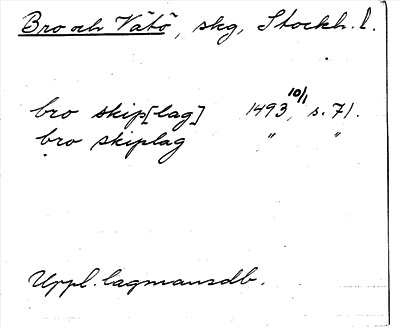 Bro och Vätö, skg, Stockh. l.
bro skip[lag] 1493 10/1, s. 71.
bro skiplag " "
Uppl. lagmansdb.